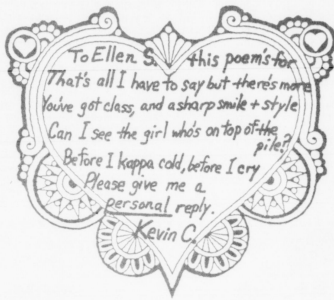 To Ellen S. this poem's for
That's all I have to say but there's more
You've got class, and a sharp smile + style
Can I see the girl who's on top of the
pile?
Before I kappa cold, before I cry
Please give me a
personal reply.
Kevin C.